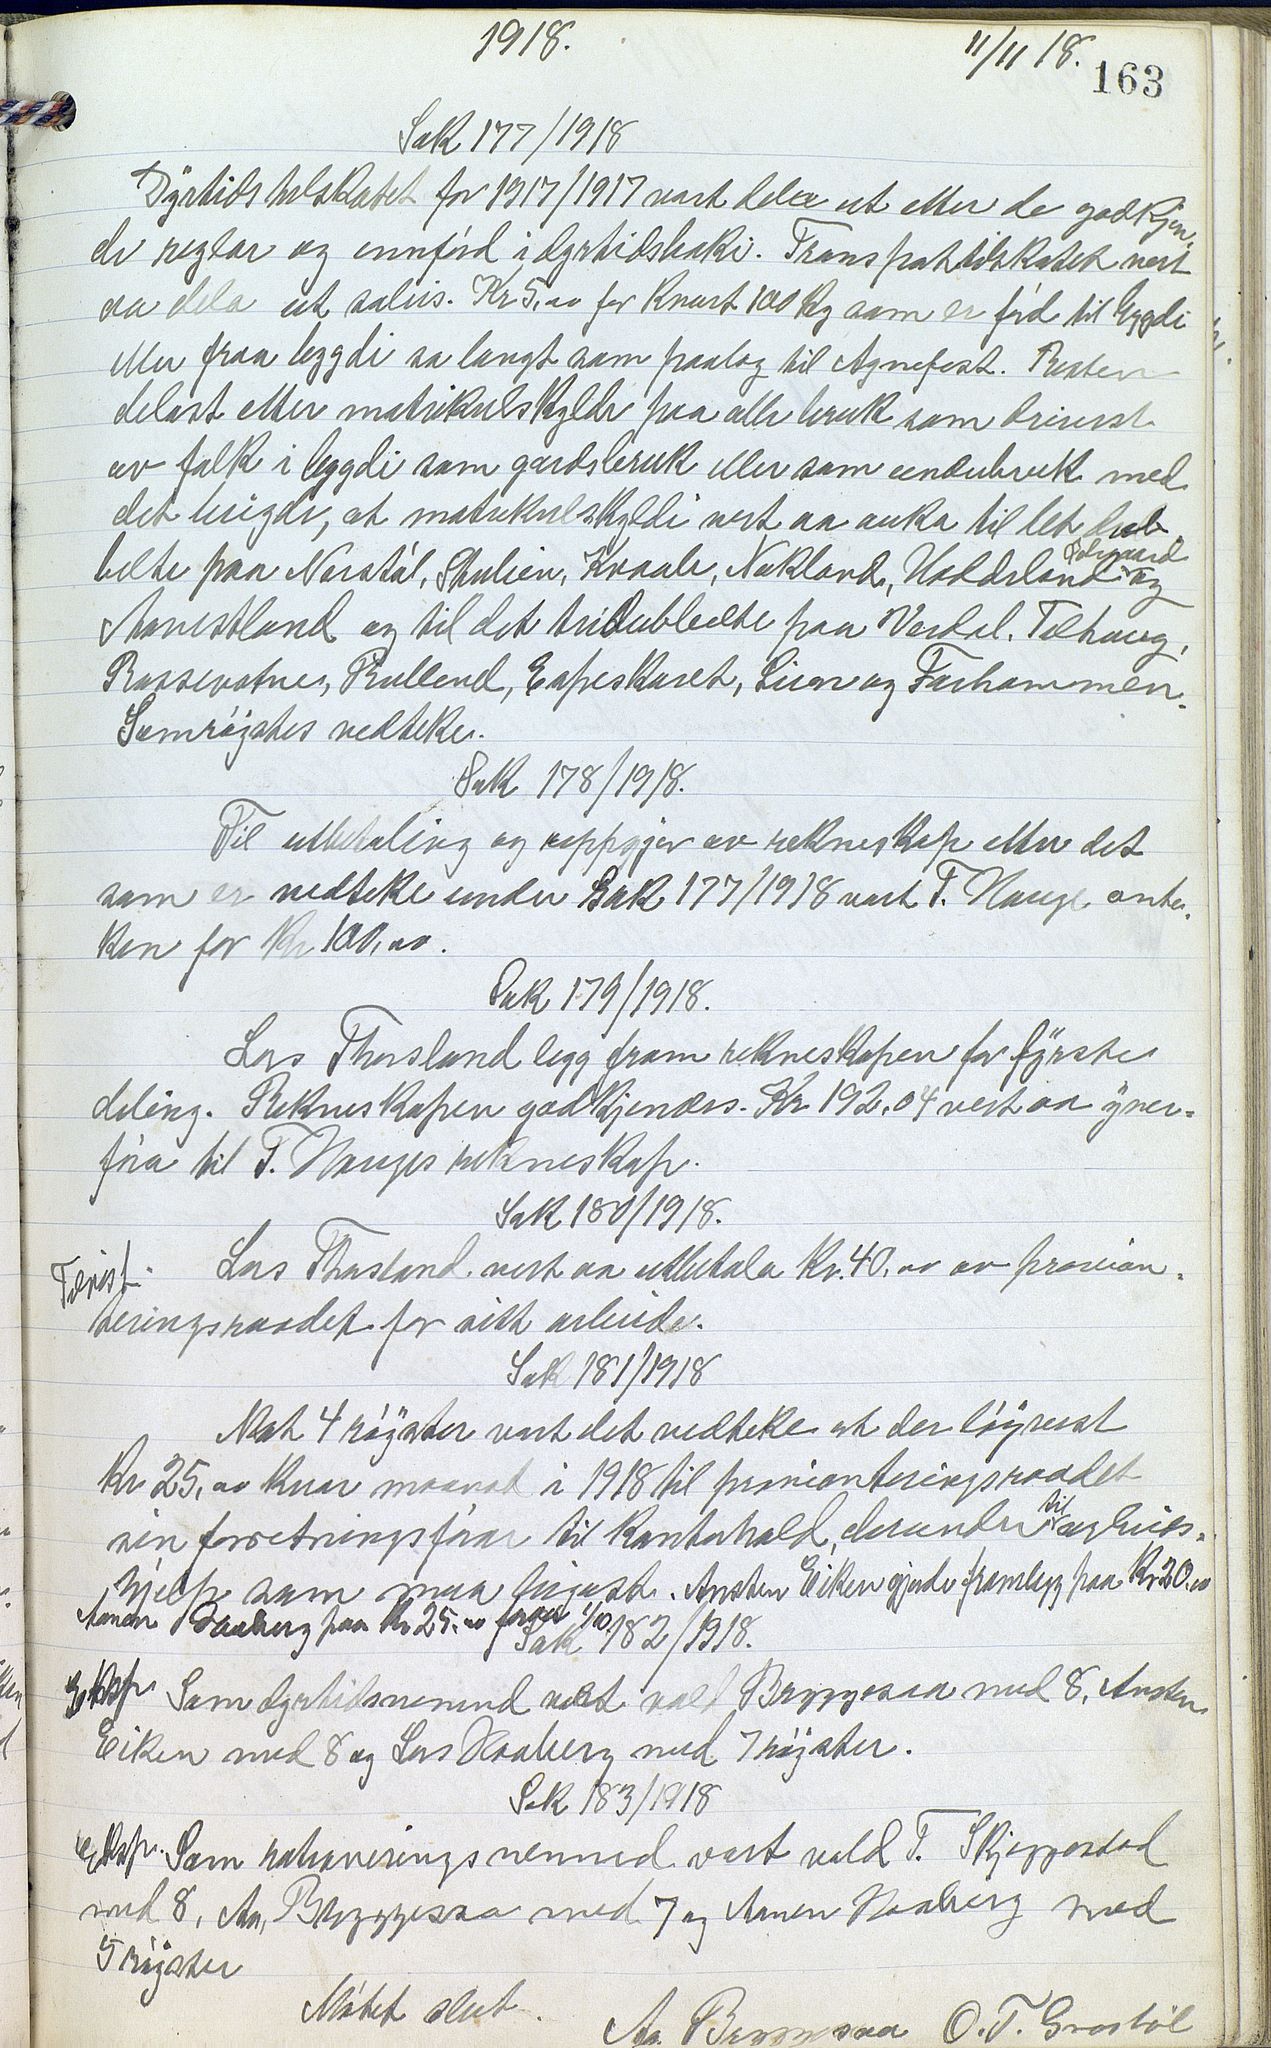 1918.
11/11 18.
163
Sak 177/1918
Dyrtidstilskotet for 1917/1917 vart dela ut etter de godkjen-
de reglar og innförd i dyrtidsboki. Transporttilskotet vert
aa dela ut soleis. Kr 5,00 for kvart 100 kg som er förd til bygdi
eller fraa bygdi so langt som paalog til Agnefest. Resten
delast etter matrikulskylde paa alle bruk som driverst
av folk i bygdi som gardsbruk eller som underbruk med
det brigde, at matrikulskyldi vert aa auka til det dub
belte paa Nerstöl, Skulien, Kvaale, Nakland, Hadderland og
Aavestland og til det tridubbelte paa Verdal. Telhaug,
Rossevatne, Rullend, Eapeskaret, Lien og Farhammen.
Samröystes vedteke.
Sak 178/1918.
Til utbetaling og uppgjer av rekneskap etter det
som er vedteke under Sak 177/1918 vart T. Hauge ante-
ken for Kr 100,00.
Sak 179/1918.
Lars Thorsland legg fram rekneskapen for fyrste
deling. Rekneskapen godkjendes. Kr 192,04 vert aa yver-
föra til T. Hauges rekneskap.
Sak 180/1918.
Tilvist. Lars Thorsland vert aa utbetala Kr. 40,00 av provian-
teringsraadet for sitt arbeide.
Sak 181/1918
Mot 4 röyster vart det vedteke at der löyvest
Kr 25,00 kvar maanad i 1918 til provianteringsraadet
sin forretningsförar til kontorhald, derunder til og
hjelp som maa. Ansten Eiken gjorde framlegg paa Kr 20.00
Aanen Haaberg paa Kr 25.00
Sak 182/1918.
Eksp. Som dyrtidsnemnd vart vald Bryggesaa med 8, Ansten
Eiken med 8 og Lars Haaberg med 7 röyster.
Sak 183/1918
Eksp. Som rationeringsnemnd vart vald T. Skjeggestad
med 8, Aa. Bryggesaa med 7 og Aanen Haaberg med
5 röyster
Mötet slut.
Aa. Bryggesaa O. T. Grostöl